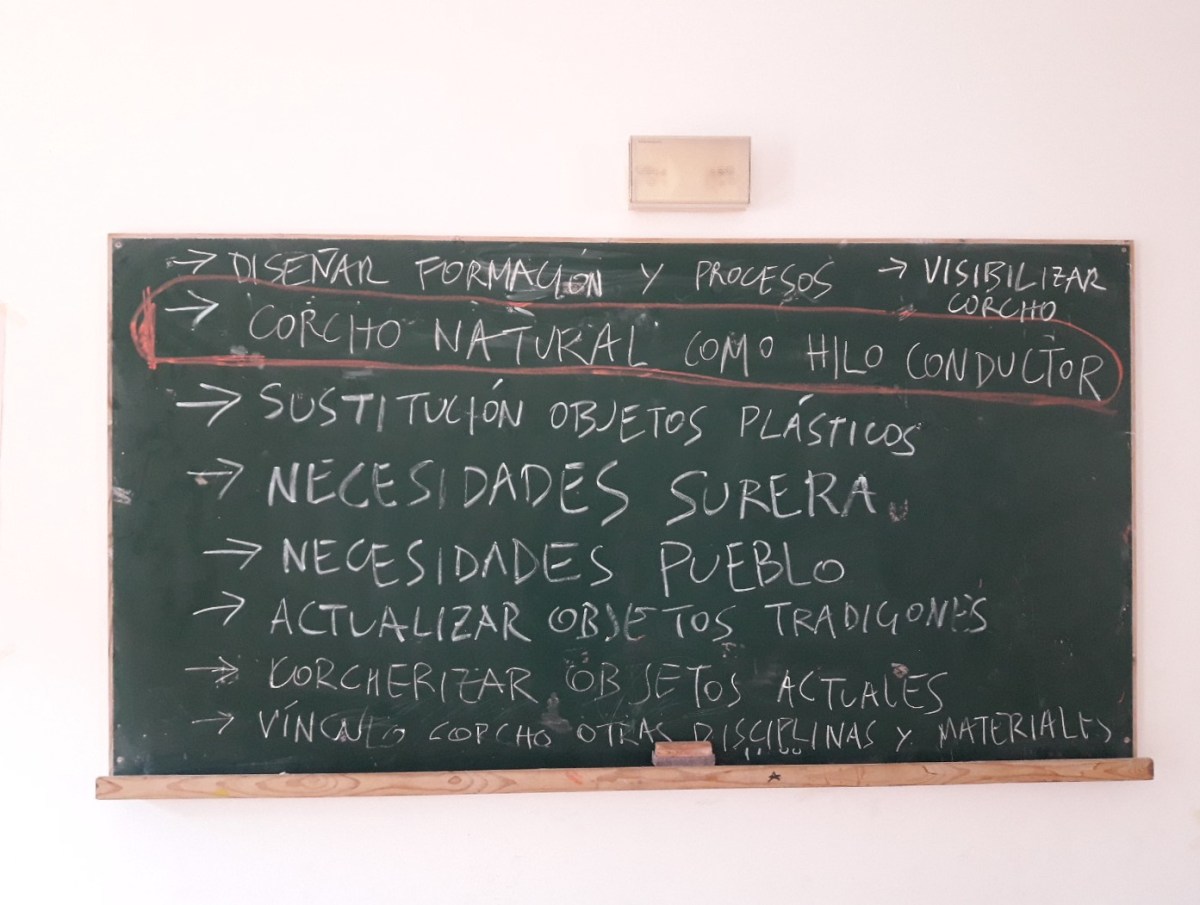 → DISEÑAR FORMACIÓN Y PROCESOS → VISIBILIZAR
CORCHO
→ CORCHO NATURAL COMO HILO CONDUCTOR
→ SUSTITUCIÓN OBJETOS PLÁSTICOS
→ NECESIDADES SURERA
→ NECESIDADES PUEBLO
→ ACTUALIZAR OBJETOS TRADICIONES
→ CORCHERIZAR OBJETOS ACTUALES
→ VÍNCULO CORCHO OTRAS DISCIPLINAS Y MATERIALES